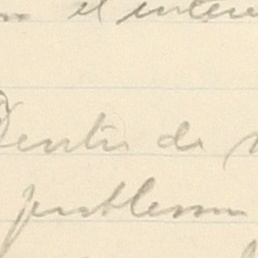 el intere
Dentro de
problema